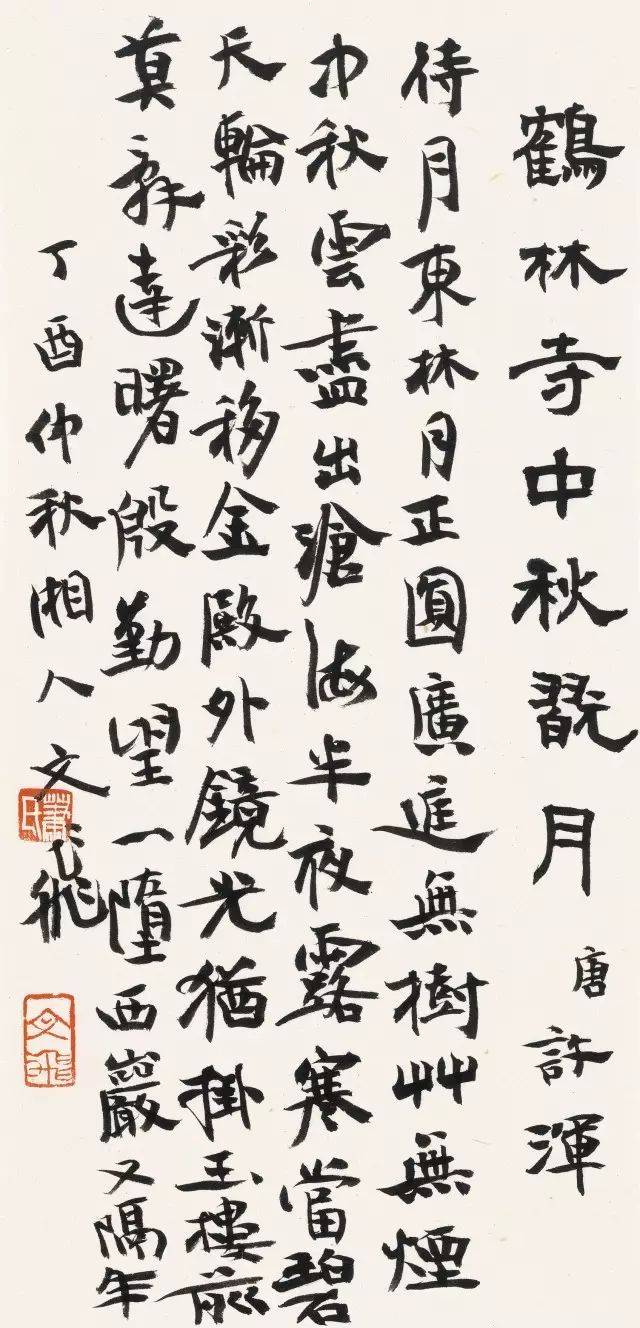 鶴林寺中秋翫月 唐 許渾
待月東林月正圓廣庭無樹艸無煙
中秋雲盡出滄海半夜露寒當碧
天輪彩漸移金殿外鏡光猶掛玉樓前
莫辭達曙殷勤望一墮西巖又隔年
丁酉仲秋湘人文飛
蕭氏
文飛